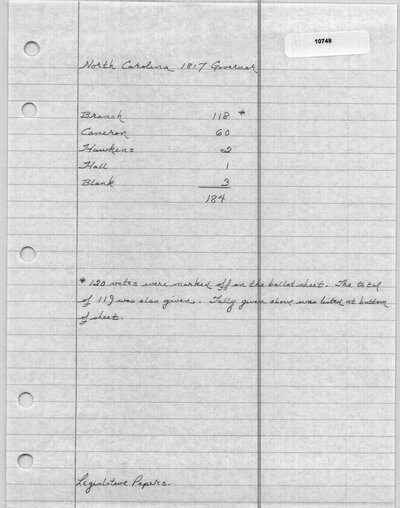 10749
North Carolina 1817 Governor
Branch 118 *
Cameron 60
Hawkins 2
Hall 1
Blank 3
184
* 120 votes were marked off on the ballot sheet. The total
of 119 was also given. Tally given above was listed at bottom
of sheet.
Legislative Papers.